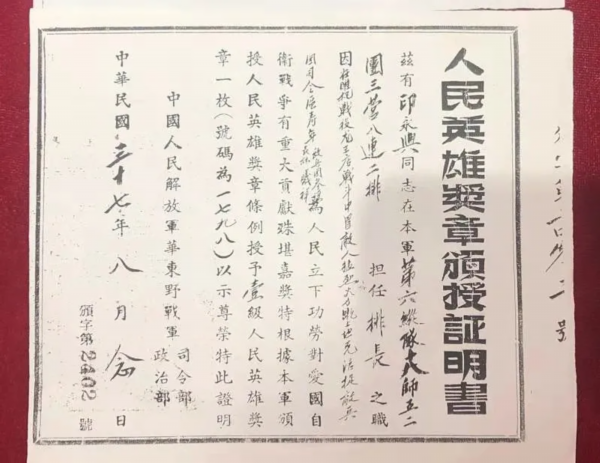 人民英雄奬章頒授証明書
茲有印永興同志在本軍第六縱隊十八師五二
團三營八連二排 担任排長之職
因在睢杞戰役龙王店戰斗中冒敌人猛烈火力活捉敌兵
團司令為人民立下功勞對愛國自
衛戰爭有重大貢獻殊堪嘉奬特根據本軍頒
授人民英雄奬章條例授予壹級人民英雄奬
章一枚(號碼為一七九八)以示尊榮特此證明
中國人民解放軍華東野戰軍 司令部
政治部
中華民國三十七年八月念日
頒字第2402號